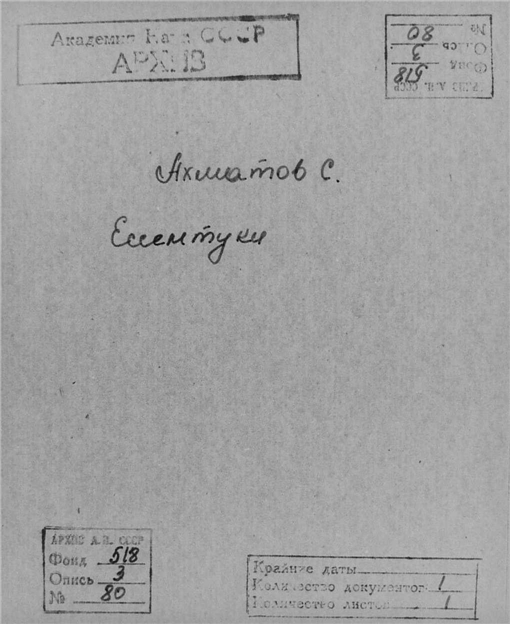 Академия Наук СССР
АРХИВ
№ 80
Опись 3
Фонд 518
АРХИВ А.Н. СССР
Ахматов С.
Ессентуки
АРХИВ А.Н. СССР
Фонд 518
Опись 3
№ 80
Крайние даты
Количество документов 1
Количество листов 1